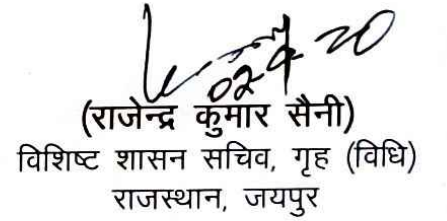 02-9-20
(राजेन्द्र कुमार सैनी)
विशिष्ट शासन सचिव, गृह (विधि)
राजस्थान, जयपुर